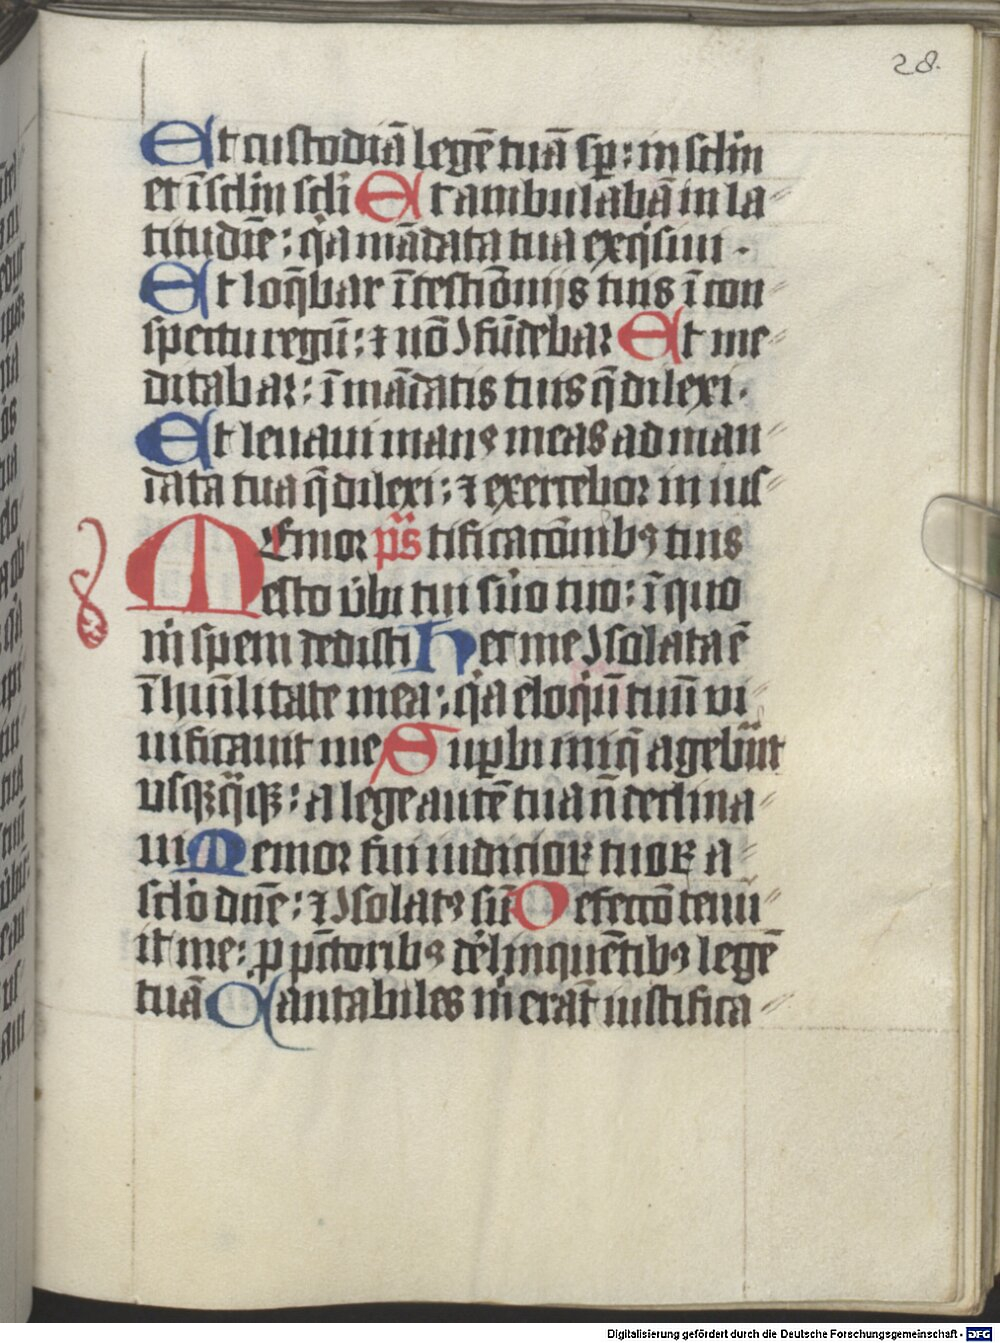 28.
Et custodiā legē tuā sp̲: in sclm
et ī sclm scli Et ambulabā in la⸗
titudīe: q̇a mādata tua exq̇siui.
Et loq̄bar ī testiōnijs tuis ī con
spectu regū: ⁊ nō ɔfūdebar Et me⸗
ditabar: ī mādatis tuis q̄ dilexi.
Et leuaui manꝰ meas ad man⸗
data tua q̄ dilexi: ⁊ exercebor in ius⸗
tificaōnibꝰ tuis p̄s
Memor
esto v̇bi tui sūo tuo: ī quo
ṁ spem dedisti Hec me ɔsolata ē
ī hūilitate mea: q̇a eloq̇ū tuū vi⸗
uificauit me Sup̲bi iniq̄ agebāt
usqꝫq̄qꝫ: a lege autē tua n̄ declina⸗
ui Memor fui iudicioꝝ tuoꝝ a⸗
sclo dn̄e: ⁊ ɔsolatꝰ sū Defectō tenu⸗
it me: p̲ pctōribꝰ delinquētibꝰ legē
tuā Cantabiles ṁ erāt iustifica⸗
Digitalisierung gefördert durch die Deutsche Forschungsgemeinschaft - DFG